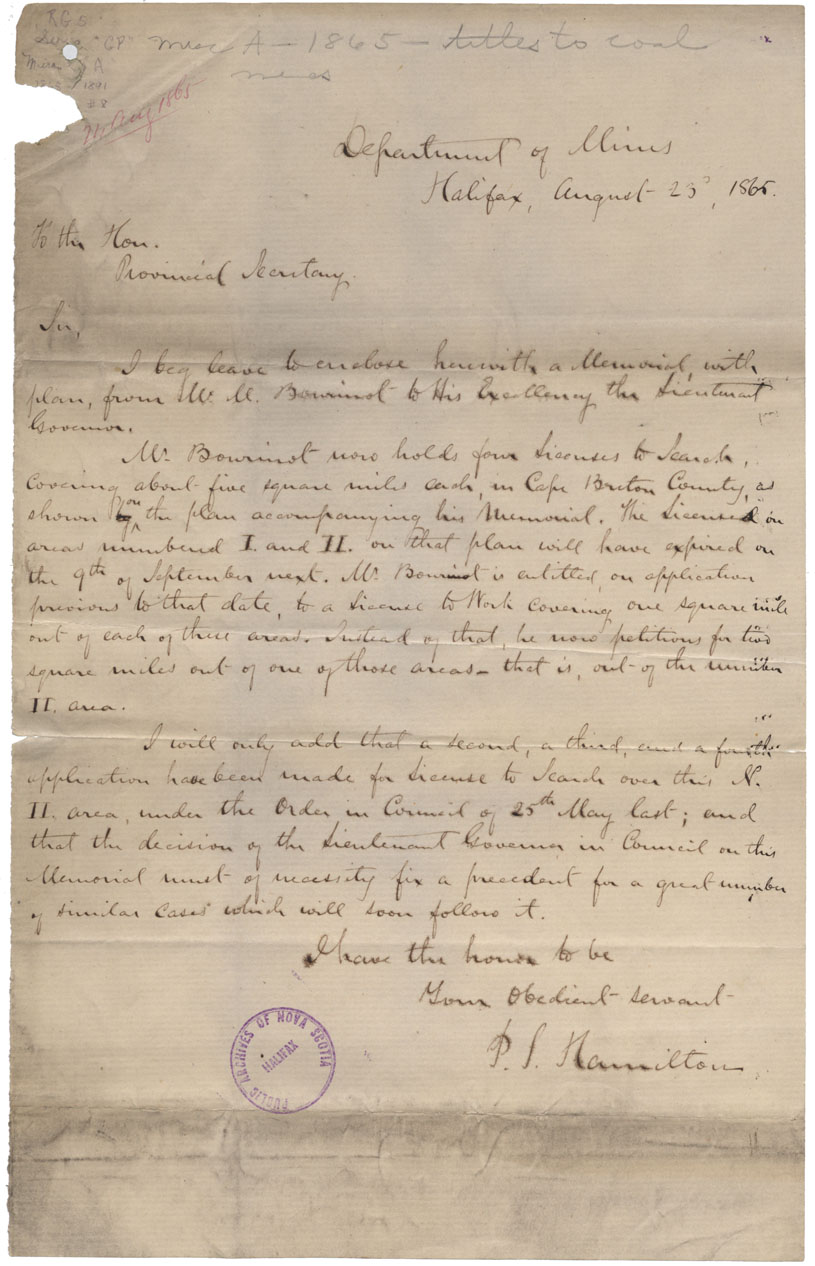 RG 5
Series "GP"
Misc "A"
1891
# 8
Misc A - 1865 - titles to coal
mines
Aug 1865
Department of Mines
Halifax, August 23d, 1865.
To the Hon.
Provincial Secretary.
Sir,
I beg leave to enclose herewith a Memorial, with
plan, from Mr. M. Bourinot to His Excellency the Lieutenant
Governor.
Mr. Bourinot now holds four Licenses to Search,
covering about five square miles each, in Cape Breton County, as
shown on the plan accompanying his Memorial. The Licenses on
areas numbered I. and II. on that plan will have expired on
the 9th of September next. Mr. Bourinot is entitled, on application
previous to that date, to a License to Work covering one square mile
out of each of these areas. Instead of that, he now petitions for two
square miles out of one of those areas - that is, out of the number
II. area.
I will only add that a second, a third, and a fourth
application have been made for License to Search over this N.
II. area, under the Order in Council of 25th May last; and
that the decision of the Lieutenant Governor in Council on this
Memorial must of necessity fix a precedent for a great number
of similar cases which will soon follow it.
I have the honor to be
Your Obedient servant
P. S. Hamilton
PUBLIC ARCHIVES OF NOVA SCOTIA
HALIFAX